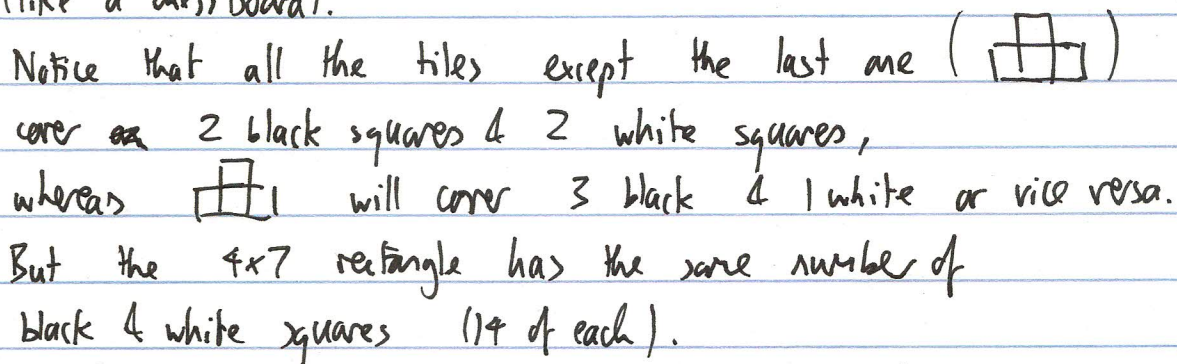 (like a chessboard).
Notice that all the tiles except the last one ( )
cover 2 black squares & 2 white squares,
whereas will cover 3 black & 1 white or vice versa.
But the 4x7 rectangle has the same number of
black & white squares (14 of each).